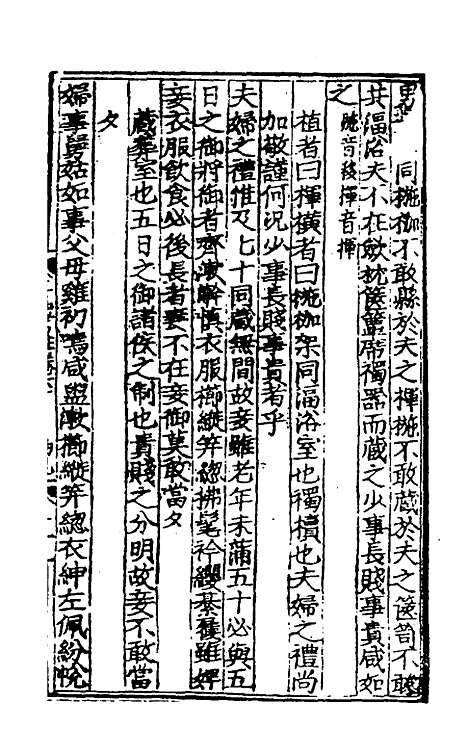 同椸枷不敢縣於夫之楎椸不敢蔵於夫之篋笥不敢
共湢浴夫不在斂枕篋簟席襡器而蔵之少事長賤事貴咸如
之 椸音移楎音揮
植者曰楎橫者曰椸枷架同湢浴室也襡櫝也夫婦之禮尚
加敬謹何況少事長賤事貴者乎
夫婦之禮惟及七十同蔵無間故妾雖老年未蒲五十必與五
日之御將御者齊漱澣慎衣服櫛縰筓緫拂髦衿纓綦屨雖婢
妾衣服飲食必後長者妻不在妾御莫敢當夕
蔵葬室也五日之御諸侯之制也貴賤之分明故妾不敢當
夕
婦事舅姑如事父母雞初鳴咸盥漱櫛縰筓緫衣紳左佩紛帨